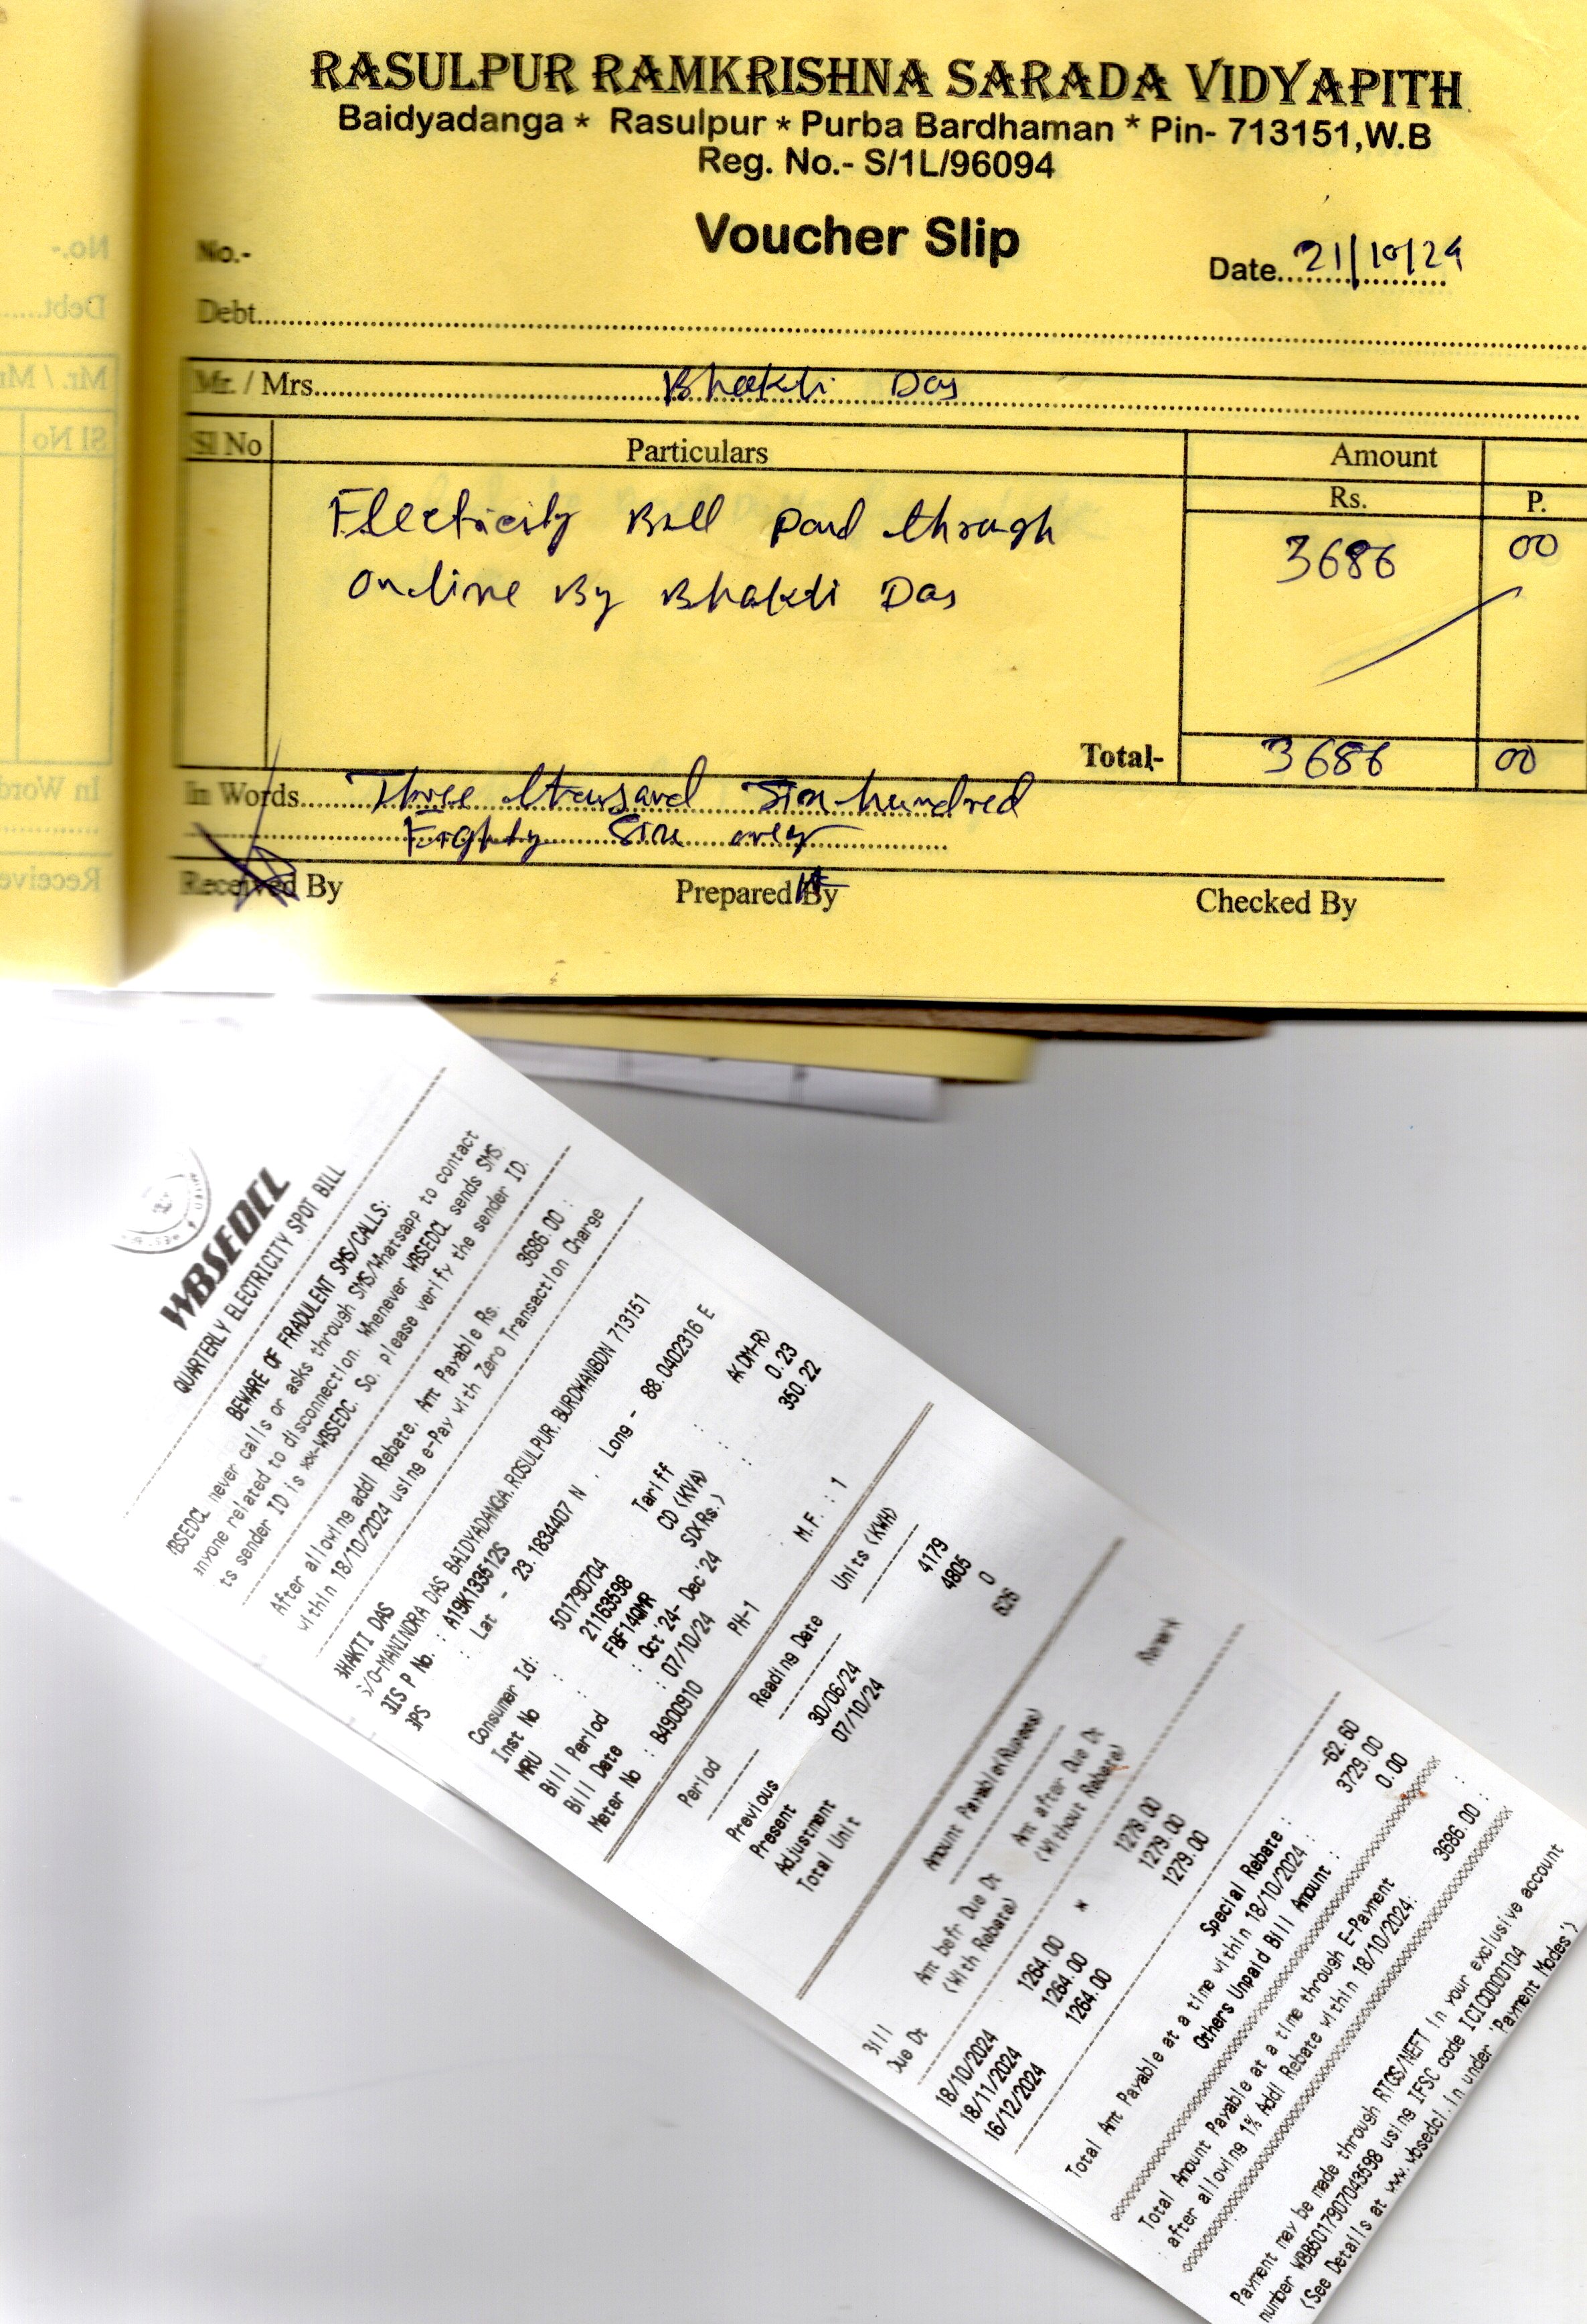 RASULPUR RAMKRISHNA SARADA VIDYAPITH
Baidyadanga * Rasulpur * Purba Bardhaman * Pin- 713151,W.B
Reg. No.- S/1L/96094
Voucher Slip
No.-
Date 21/10/24
Debt
Mr. / Mrs. Bhakti Das
Sl No Particulars Amount
Rs. P.
Electricity Bill paid through 3686 00
online By Bhakti Das
Total- 3686 00
In Words Three thousand Six hundred
Eighty Six only
Received By Prepared By Checked By
WBSEDCL
QUARTERLY ELECTRICITY SPOT BILL
BEWARE OF FRADULENT SMS/CALLS:
WBSEDCL never calls or asks through SMS/Whatsapp to contact
anyone related to disconnection. Whenever WBSEDCL sends SMS,
ts sender ID is xx-WBSEDC. So, please verify the sender ID.
After allowing addl Rebate, Amt Payable Rs. 3686.00 :
within 18/10/2024 using e-Pay with Zero Transaction Charge
BHAKTI DAS
S/O-MANINDRA DAS BAIDYADANGA, ROSULPUR, BURDWANBDN 713151
GIS P No. : A19K133512S
GPS : Lat - 23.1834407 N , Long - 88.0402316 E
Consumer Id: 501790704 Tariff : A(DM-R)
Inst No : 21163598 CD (KVA) : 0.23
MRU : FBF14QMR SD(Rs.) : 350.22
Bill Period : Oct '24- Dec '24
Bill Date : 07/10/24
Meter No : B4900910 PH-1 M.F. : 1
Period Reading Date Units (KWH)
Previous 30/06/24 4179
Present 07/10/24 4805
Adjustment 0
Total Unit 626
Amount Payable(Rupees)
Bill Amt befr Due Dt Amt after Due Dt Remark
Due Dt (With Rebate) (Without Rebate)
18/10/2024 1264.00 * 1279.00
18/11/2024 1264.00 1279.00
16/12/2024 1264.00 1279.00
Special Rebate : -62.60
Total Amt Payable at a time within 18/10/2024 : 3729.00
Others Unpaid Bill Amount : 0.00
Total Amount Payable at a time through E-Payment
after allowing 1% Addl Rebate within 18/10/2024: 3686.00 :
Payment may be made through RTGS/NEFT in your exclusive account
number WBB5017907043598 using IFSC code ICIC0000104
(See Details at www.wbsedcl.in under 'Payment Modes')